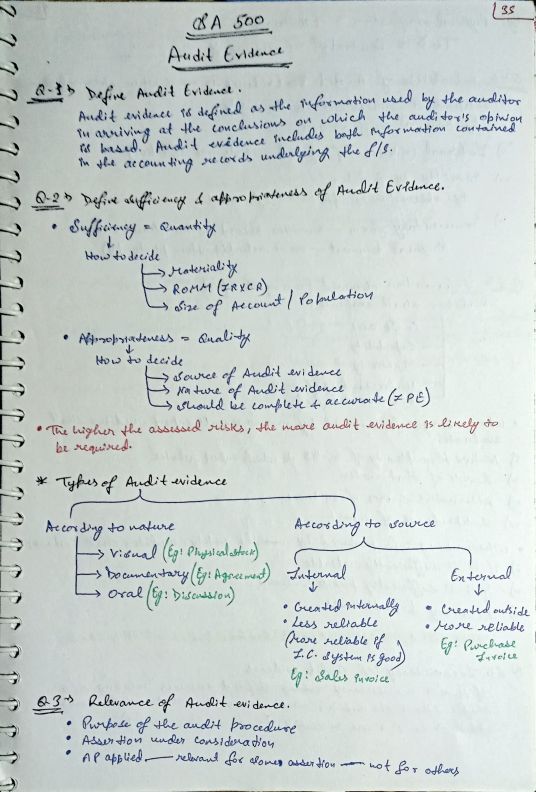 35
SA 500
Audit Evidence
Q-1→ Define Audit Evidence.
Audit evidence is defined as the information used by the auditor
in arriving at the conclusions on which the auditor's opinion
is based. Audit evidence includes both information contained
in the accounting records underlying the F/S.
Q-2→ Define sufficiency & appropriateness of Audit Evidence.
• Sufficiency = Quantity
↓
How to decide
→ Materiality
→ ROMM (IRXCR)
→ Size of Account / Population
• Appropriateness = Quality
↓
How to decide
→ Source of Audit evidence
→ Nature of Audit evidence
→ Should be complete & accurate (IPE)
• The higher the assessed risks, the more audit evidence is likely to
be required.
* Types of Audit evidence
According to nature
→ Visual (Eg: Physical stock)
→ Documentary (Eg: Agreement)
→ Oral (Eg: Discussion)
According to source
Internal
↓
• Created internally
• Less reliable
(More reliable if
I.C. system is good)
Eg: Sales invoice
External
↓
• Created outside
• More reliable
Eg: Purchase
Invoice
Q-3→ Relevance of Audit evidence.
• Purpose of the audit procedure
• Assertion under consideration
• AP applied — relevant for assertion — not for others